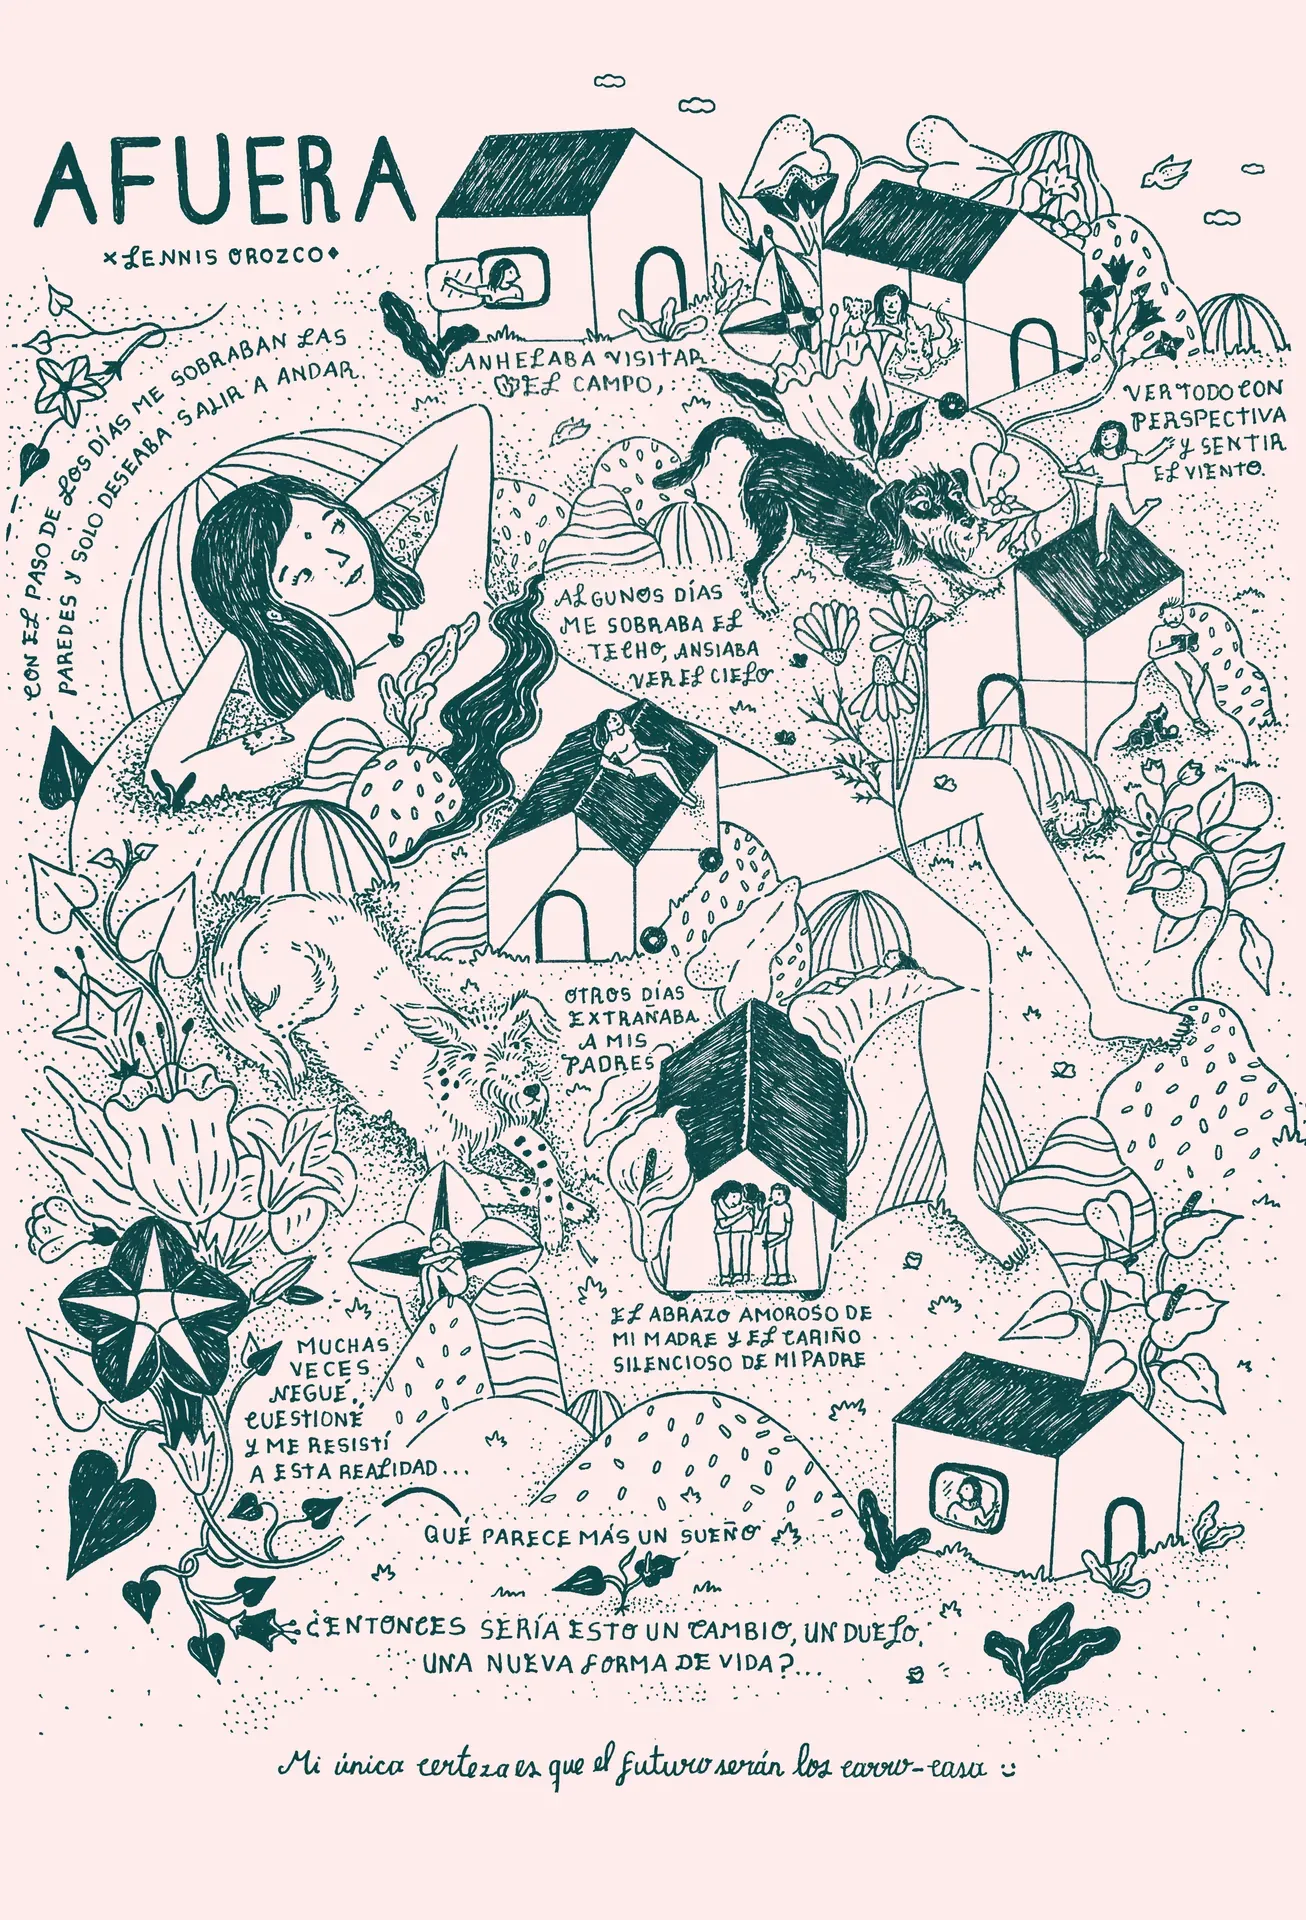 AFUERA
×LENNIS OROZCO♦
CON EL PASO DE LOS DÍAS ME SOBRABAN LAS
PAREDES Y SOLO DESEABA SALIR A ANDAR.
ANHELABA VISITAR
EL CAMPO,
VER TODO CON
PERSPECTIVA
Y SENTIR
EL VIENTO.
ALGUNOS DÍAS
ME SOBRABA EL
TECHO, ANSIABA
VER EL CIELO
OTROS DÍAS
EXTRAÑABA
A MIS
PADRES
EL ABRAZO AMOROSO DE
MI MADRE Y EL CARIÑO
SILENCIOSO DE MI PADRE
MUCHAS
VECES
NEGUÉ,
CUESTIONÉ
Y ME RESISTÍ
A ESTA REALIDAD...
QUÉ PARECE MÁS UN SUEÑO
¿ENTONCES SERÍA ESTO UN CAMBIO, UN DUELO,
UNA NUEVA FORMA DE VIDA?...
Mi única certeza es que el futuro serán los carro-casa :)